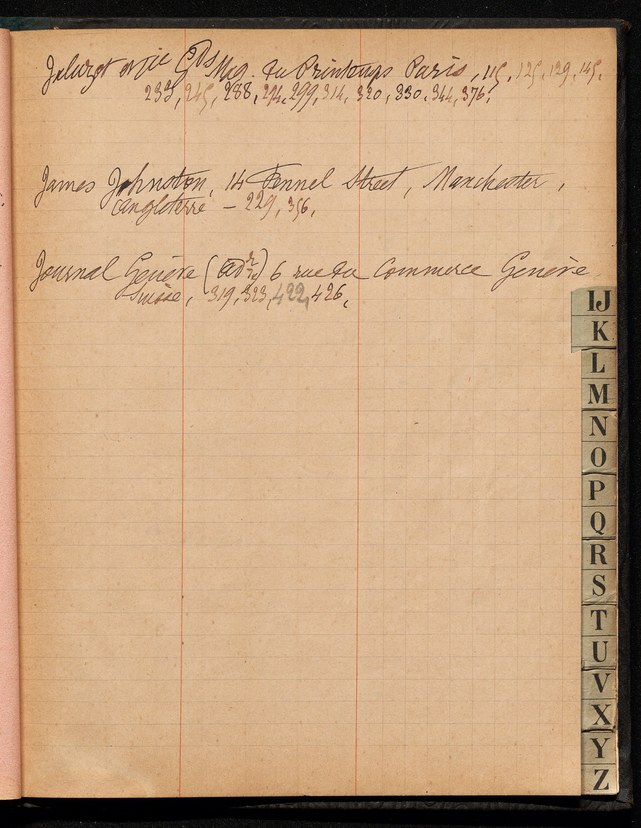 Jaluzot et Cie Gds Mag. du Printemps Paris, 115, 125, 129, 145,
233, 245, 288, 294, 299, 314, 320, 330, 344, 376,
James Johnston, 14 Fennel Street, Manchester,
Angleterre – 229, 356,
Journal Genève (adon) 6 rue du Commerce Genève
Suisse, 319, 323, 422, 426,
IJ
K
L
M
N
O
P
Q
R
S
T
U
V
X
Y
Z